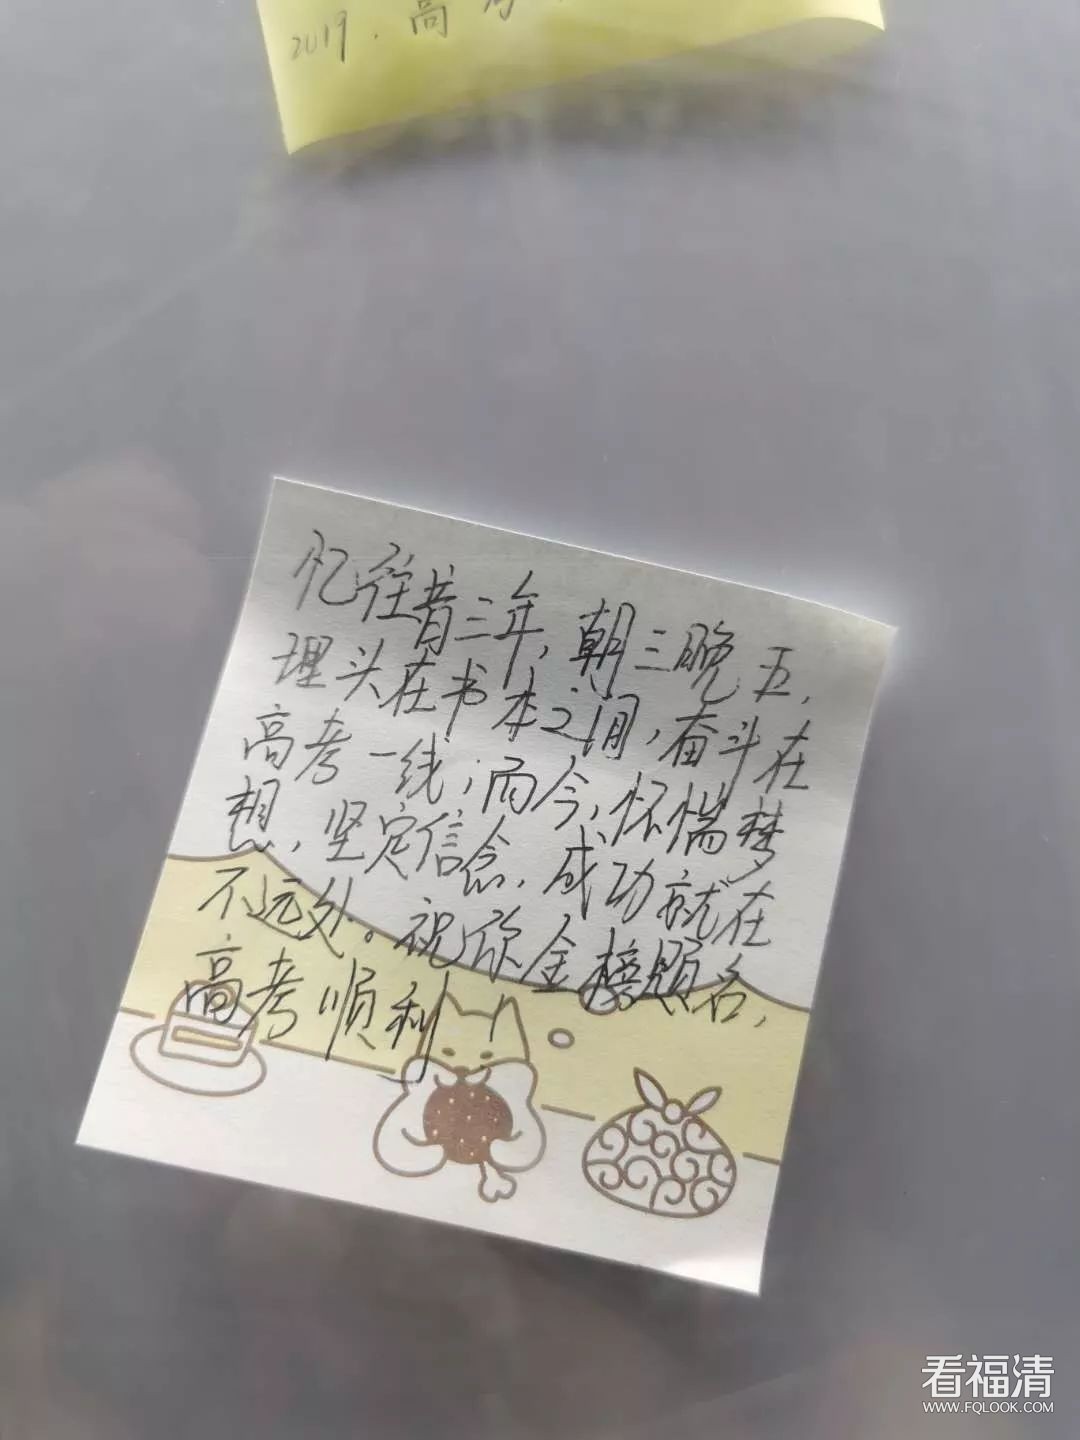 2019.高考
忆往昔三年,朝三晚五,
埋头在书本之间,奋斗在
高考一线;而今,怀惴梦
想,坚定信念,成功就在
不远处。祝你金榜题名,
高考顺利!
看福清
WWW.FQLOOK.COM